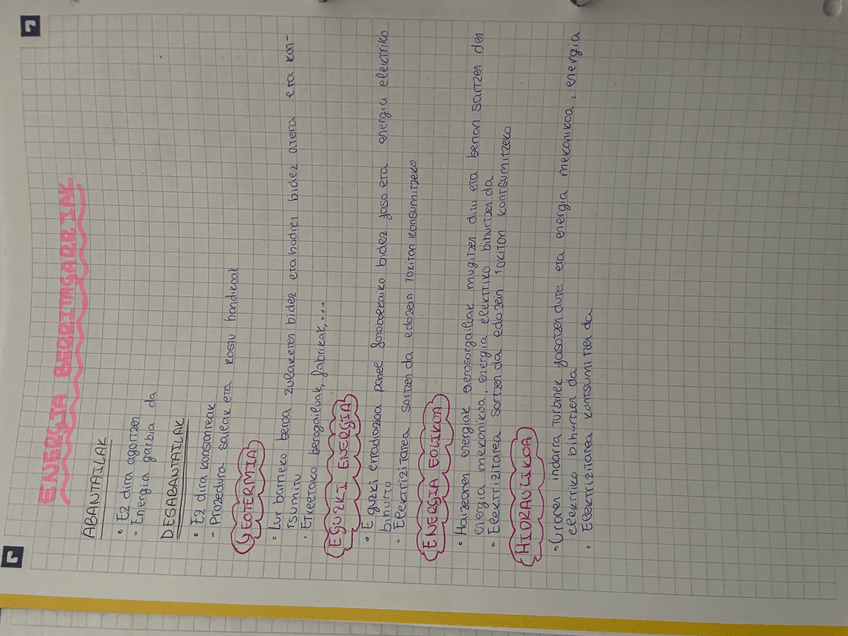 ENERGIA BERRITAGARRIAK
ABANTAILAK
• Ez dira agortzen
- Energia garbia da
DESABANTAILAK
• Ez dira konstanteak
- Prozedura zailak eta kostu handikoak
GEOTERMIA
• Lur barneko beroa zulaketen bidez eta hodien bidez atera eta kon-
tsumitu
• Etxeetako berogailuak, fabrikak,...
EGUZKI ENERGIA
• Eguzki erradiazioa panel fotovoltaiko bidez jaso eta energia elektriko
bihurtu
- Elektrizitatea sortzen da edozein tokitan konsumitzeko
ENERGIA EOLIKOA
• Haizearen energiak aerosorgailuak mugitzen ditu eta bertan sortzen den
energia mekanikoa, energia elektriko bihurtzen da
- Elektrizitatea sortzen da edozein tokitan kontsumitzeko
HIDRAULIKOA
• Uraren indarra turbinek jasotzen dute eta energia mekanikoa, energia
elektriko bihurtzen da
• Elektrizitatea kontsumitzea da